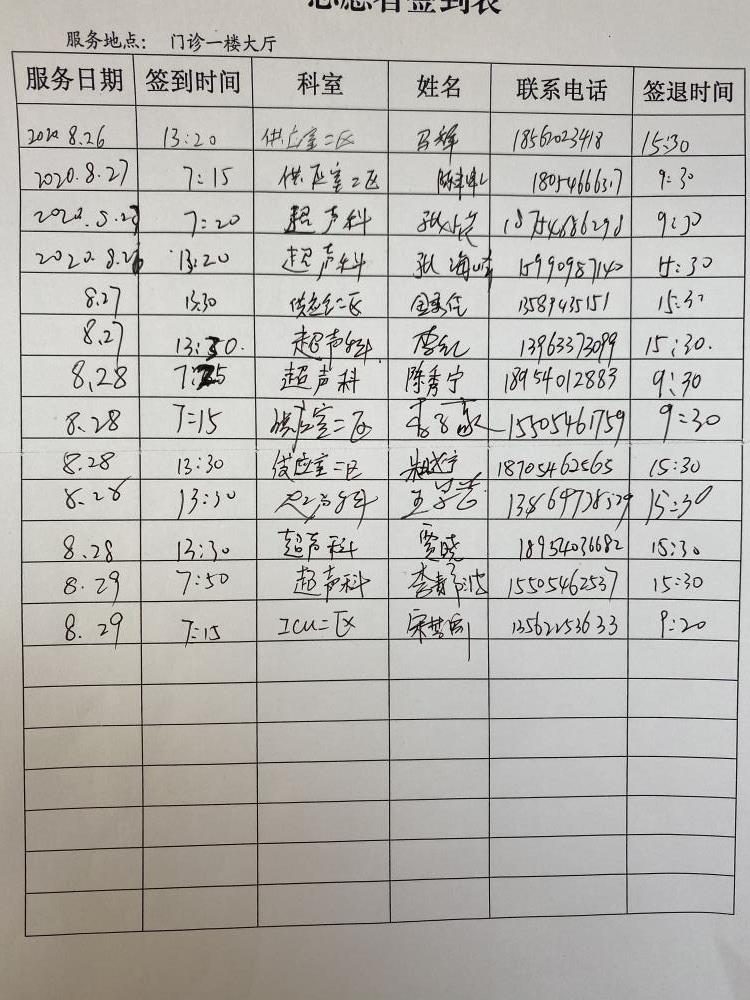 志愿者签到表
服务地点： 门诊一楼大厅
服务日期 签到时间 科室 姓名 联系电话 签退时间
2020 8.26 13:20 供应室二区 马辉 18562023418 15:30
2020.8.27 7:15 供应室二区 18054666317 9:30
7:20 超声科 18754686298 9:30
2020.8.26 13:20 超声科 张海峰 15990987140 15:30
8.27 13:30 供应室二区 13589435151 15:30
8.27 13:30. 超声科. 李红 13963373099 15:30.
8.28 超声科 陈秀宁 18954012883 9:30
8.28 7:15 供应室二区 15505461759 9:30
8.28 13:30 供应室二区 18705462565 15:30
8.28 13:30 超声科 15:30
8.28 13:30 超声科 贾晓 18954036682 15:30
8.29 7:50 超声科 15505462537 15:30
8.29 7:15 ICU二区 13562253633 9:20